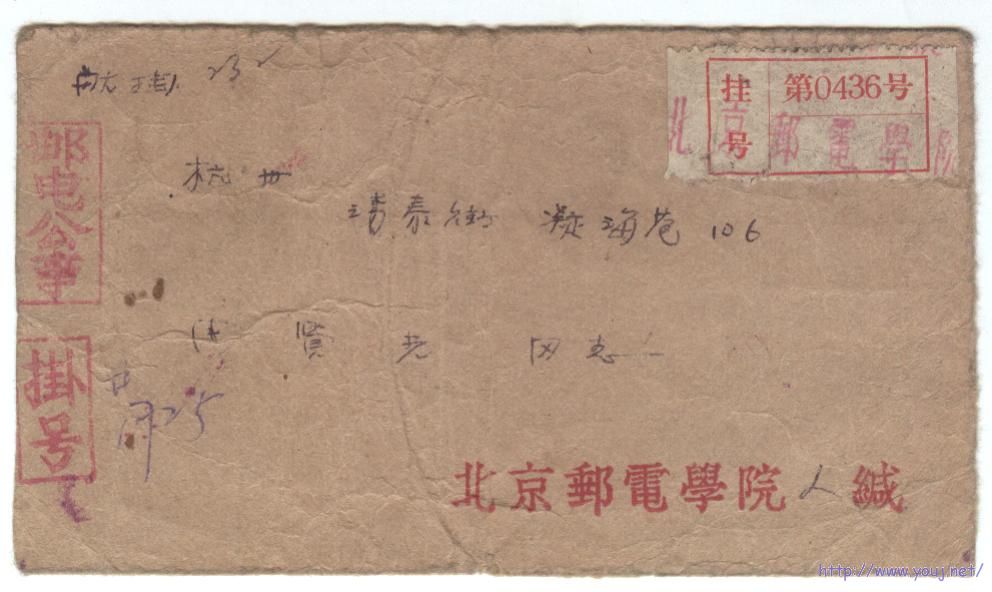 航挂 232
挂号
第0436号
北京郵電學院
邮电公事
杭州
清泰街 凝海巷 106
賢 同志
掛号
北京郵電學院人緘
http://www.youj.net/